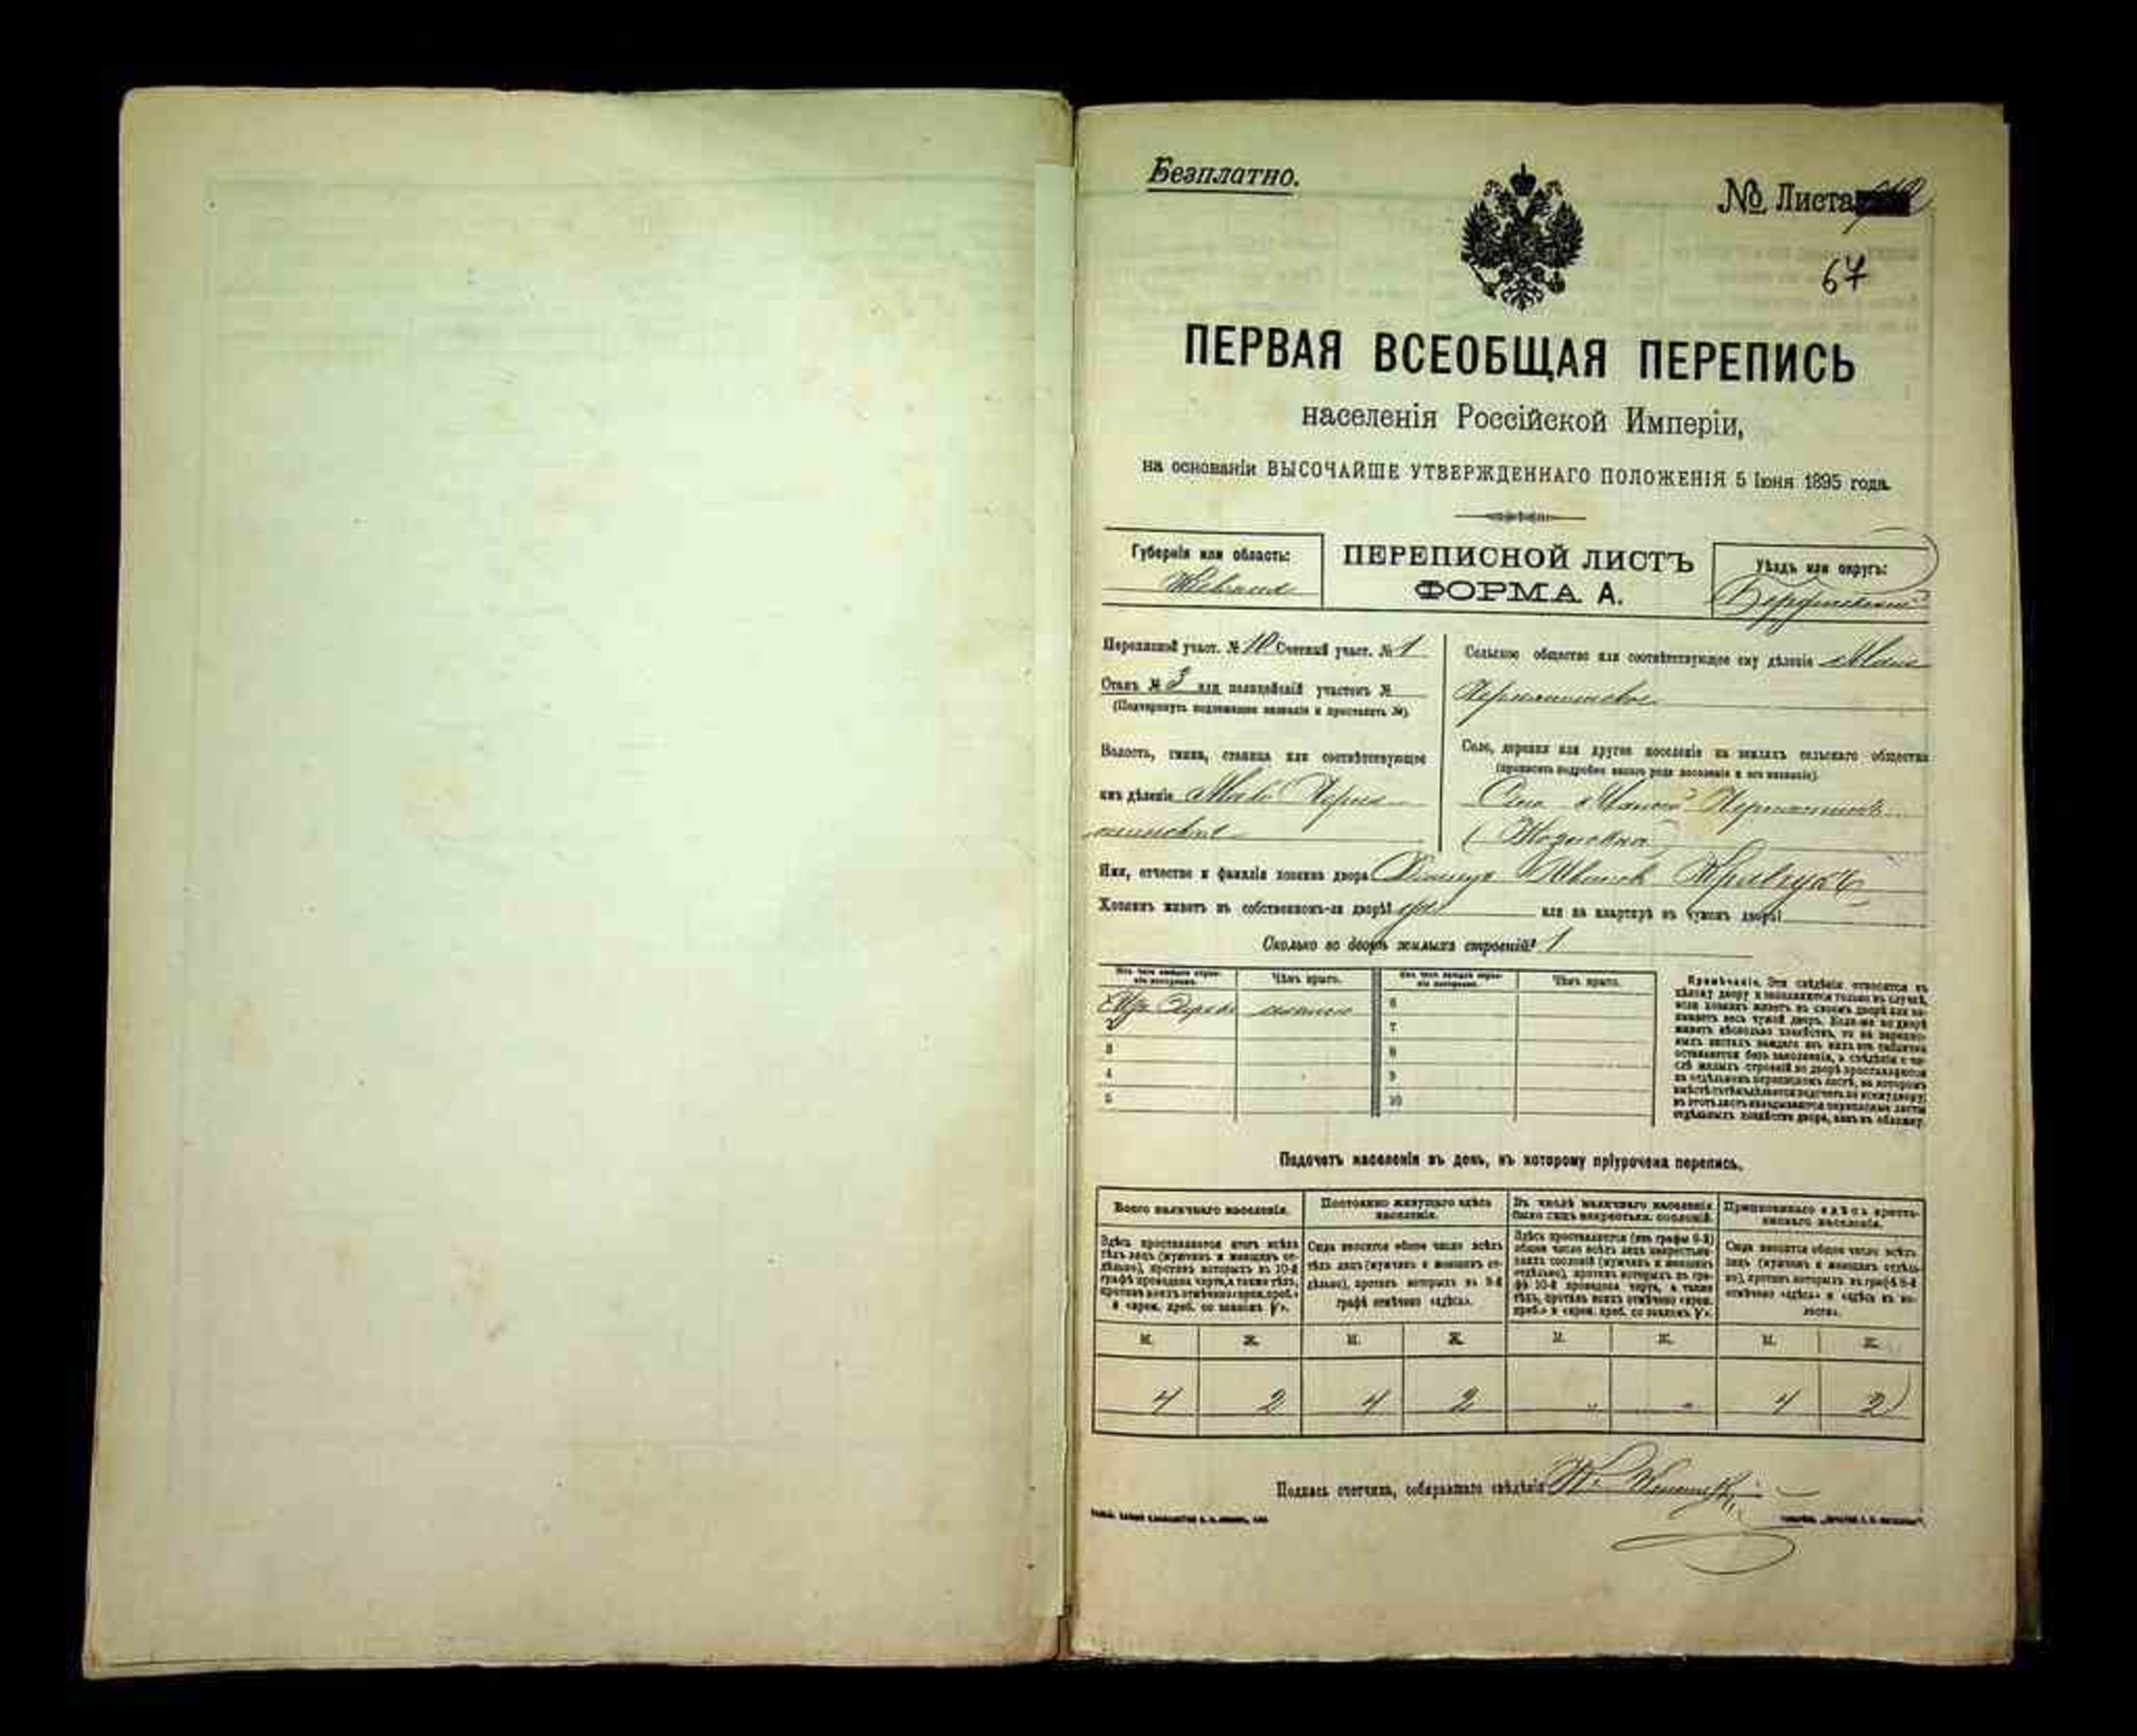 Безплатно.
№ Листа
67
ПЕРВАЯ ВСЕОБЩАЯ ПЕРЕПИСЬ
населенія Россійской Имперіи,
на основаніи ВЫСОЧАЙШЕ УТВЕРЖДЕННАГО ПОЛОЖЕНІЯ 5 Іюня 1895 года.
Губернія или область:
Кіевская
ПЕРЕПИСНОЙ ЛИСТЪ
ФОРМА А.
Уѣздъ или округъ:
Бердичевскій
Переписной участ. № 10 Счетный участ. № 1
Станъ № 3 или полицейскій участокъ №
(Подчеркнуть подлежащее названіе и проставить №)
Волость, гмина, станица или соотвѣтствующее
имъ дѣленіе Мало Черня
тинская
Сельское общество или соотвѣтствующее ему дѣленіе Мало
Чернятинское
Село, деревня или другое поселеніе на земляхъ сельскаго общества
(прописать подробно какого рода поселеніе и его названіе).
Село Малый Чернятинъ
Имя, отчество и фамилія хозяина двора Иванов Кравчукъ
Хозяинъ живетъ въ собственномъ-ли дворѣ? да или на квартирѣ въ чужомъ дворѣ?
Сколько во дворѣ жилыхъ строеній? 1
Изъ чего каждое строеніе построено. Чѣмъ крыто. Изъ чего каждое строеніе построено. Чѣмъ крыто.
Изъ дерева соломою 6
2 7
3 8
4 9
5 10
Примѣчаніе. Эти свѣдѣнія относятся къ
цѣлому двору и заполняются только въ случаѣ,
если хозяинъ живетъ въ своемъ дворѣ или за-
нимаетъ весь чужой дворъ. Если-же во дворѣ
живетъ нѣсколько хозяйствъ, то на перепис-
ныхъ листахъ каждаго изъ нихъ эти таблички
остаются безъ заполненія, а свѣдѣнія о чи-
слѣ жилыхъ строеній во дворѣ проставляются
на отдѣльномъ переписномъ листѣ, на которомъ
въ этотъ листъ вкладываются переписные листы
отдѣльныхъ хозяйствъ двора, какъ въ обложку.
Подсчетъ населенія въ день, къ которому пріурочена перепись.
Всего наличнаго населенія.
Здѣсь проставляется итогъ всѣхъ
тѣхъ лицъ (мужчинъ и женщинъ от-
дѣльно), противъ которыхъ въ 10-й
графѣ проведена черта, а также тѣхъ,
противъ коихъ отмѣчено «врем. преб.»
и «врем. преб. со знакомъ V».
Постоянно живущаго здѣсь
населенія.
Сюда вносится общее число всѣхъ
тѣхъ лицъ (мужчинъ и женщинъ от-
дѣльно), противъ которыхъ въ 9-й
графѣ отмѣчено «здѣсь».
Въ числѣ наличнаго населенія
было лицъ некрестьян. сословій.
Здѣсь проставляется (изъ графы 6-й)
общее число всѣхъ лицъ некрестьян-
скихъ сословій (мужчинъ и женщинъ
отдѣльно), противъ которыхъ въ гра-
фѣ 10-й проведена черта, а также
тѣхъ, противъ коихъ отмѣчено «врем.
преб.» и «врем. преб. со знакомъ V».
Приписаннаго здѣсь кресть-
янскаго населенія.
Сюда вносится общее число всѣхъ
лицъ (мужчинъ и женщинъ отдѣль-
но), противъ которыхъ въ графѣ 8-й
отмѣчено «здѣсь» и «здѣсь въ во-
лости».
М. Ж. М. Ж. М. Ж. М. Ж.
4 2 4 2 „ „ 4 2
Подпись счетчика, собиравшаго свѣдѣнія